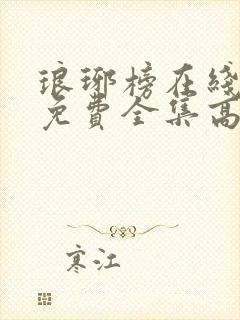 琅琊榜在线
免費全集高
寒江